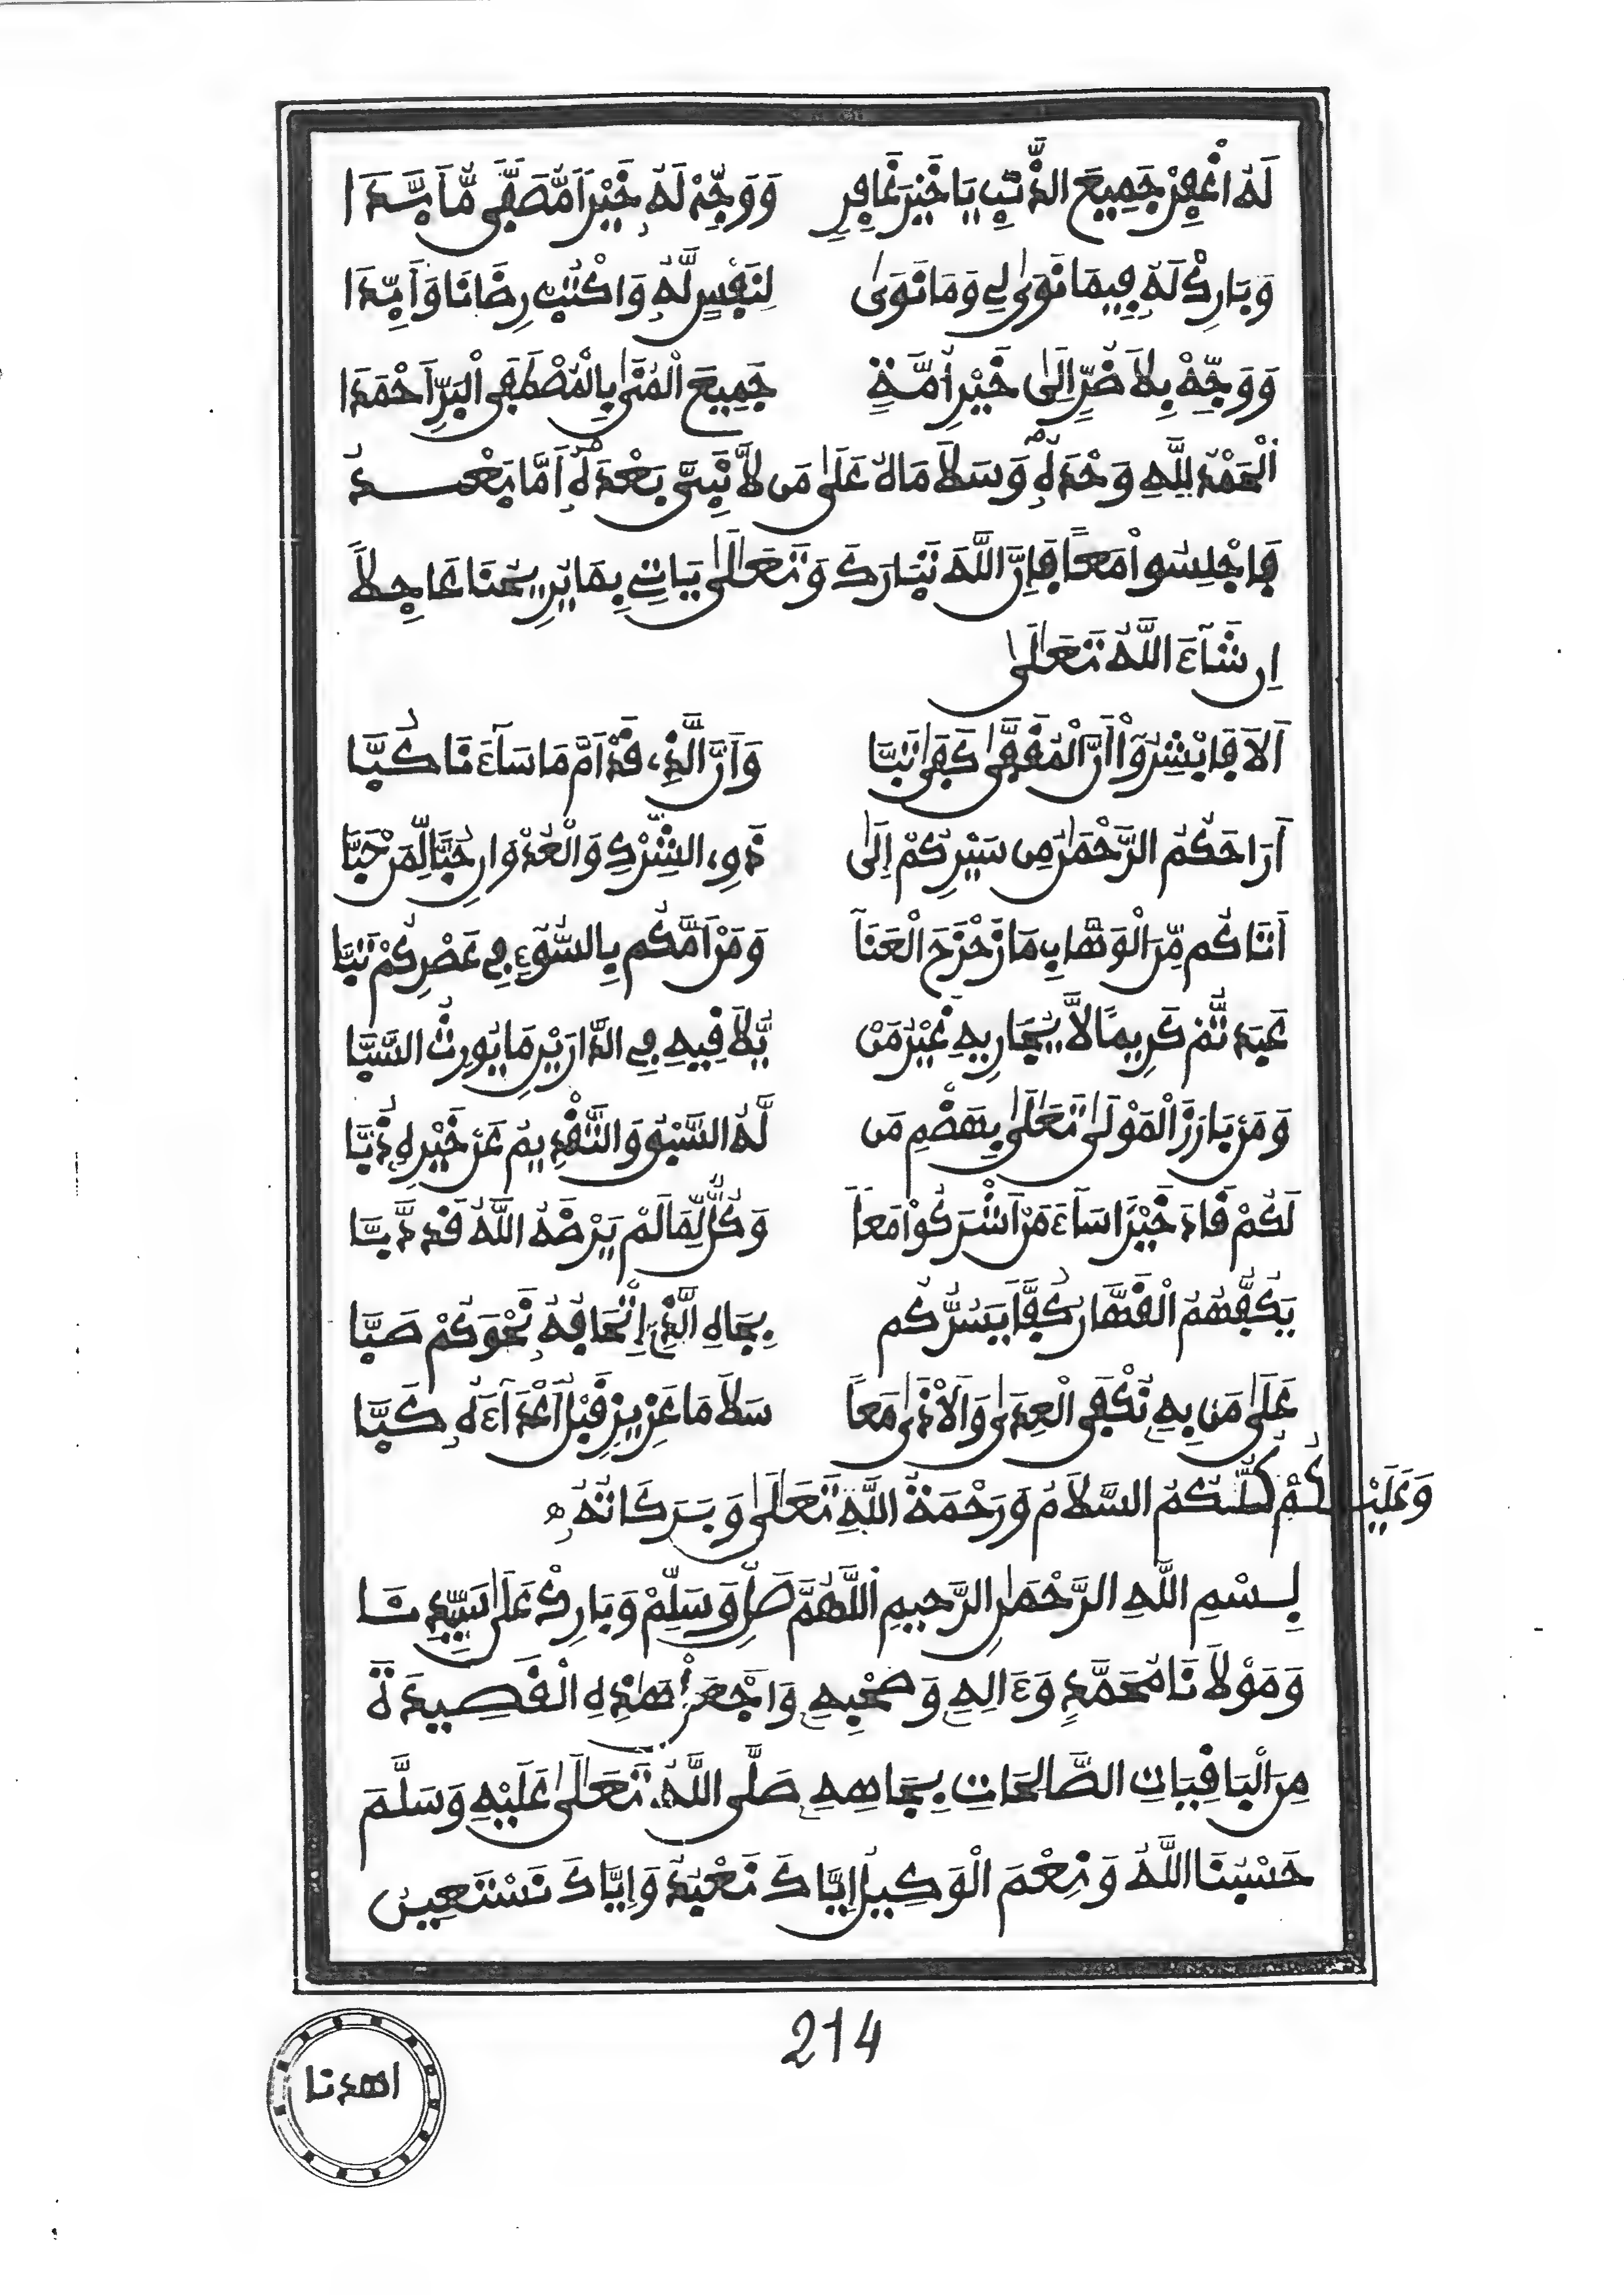 لَهُ اغْفِرْ جَمِيعَ الذَّنبِ يَا خَيْرَ غَافِرِ وَوَجِّهْ لَهُ خَيْرَ
وَبَارِكْ لَهُ فِيمَا نَوَى لِي وَمَا نَوَى لِنَفْسٍ لَهُ وَاكْتُبْ رِضَانَا وَأَبِّدَا
وَوَجِّهْ بِلَا ضُرٍّ إِلَى خَيْرِ أُمَّةٍ جَمِيعَ الْمُنَى بِالْمُصْطَفَى الْبَرِّ أَحْمَدَا
اَلْحَمْدُ لِلَّهِ وَحْدَهُ وَسَلَامَاهُ عَلَى مَن لَّا نَبِيَّ بَعْدَهُ أَمَّا بَعْدُ
فَاجْلِسُوا مَعًا فَإِنَّ اللَّهَ تَبَارَكَ وَتَعَالَى يَاتِي بِمَا يُرِيحُنَا عَاجِلًا
إِن شَآءَ اللَّهُ تَعَالَى
أَلَا فَابْشِرُوا أَنَّ الْمُقَفَّى كَفَى تَبَّا وَأَنَّ الَّذِي قَدْ أَمَّ مَا سَآءَنَا كُبَّا
أَرَاحَكُمُ الرَّحْمَنُ مِن سَيْرِكُمْ إِلَى ذَوِي الشِّرْكِ وَالْعُدْوَانِ حُبًّا لِّمَنْ حَبَّا
أَتَاكُم مِّنَ الْوَهَّابِ مَا زَحْزَحَ الْعَنَآ وَمَنْ أَمَّكُم بِالسُّوٓءِ فِي عَصْرِكُمْ تَبَّا
عَبَدتُّمْ كَرِيمًا لَّا يُجَارِيهِ غَيْرُ مَنْ يُّلَاقِيهِ فِي الدَّارَيْنِ مَا يُورِثُ السَّبَّا
وَمَن بَارَزَ الْمَوْلَى تَعَالَى بِهَضْمِ مَن لَّهُ السَّبْقُ وَالتَّقْدِيمُ عَن خَيْرِهِ ذُبَّا
لَكُمْ قَادَ خَيْرًا سَآءَ مَنْ أَشْرَكُوا مَعًا وَكُلٌّ لِّمَا لَمْ يَرْضَهُ اللَّهُ قَدْ دَبَّا
يَكُفُّهُمُ الْقَهَّارُ كَفًّا يَسُرُّكُم بِجَاهِ الَّذِي إِتْحَافُهُ نَحْوَكُمْ صَبَّا
عَلَى مَن بِهِ نُكْفَى الْعِدَى وَالْأَذَى مَعًا سَلَامَا عَزِيزٍ قَبْلُ أَعْدَآءَهُ كَبَّا
وَعَلَيْكُمْ كُلِّكُمُ السَّلَامُ وَرَحْمَةُ اللَّهِ تَعَالَى وَبَرَكَاتُهُ
بِسْمِ اللَّهِ الرَّحْمَنِ الرَّحِيمِ اللَّهُمَّ صَلِّ وَسَلِّمْ وَبَارِكْ عَلَى سَيِّدِنَا
وَمَوْلَانَا مُحَمَّدٍ وَءَالِهِ وَصَحْبِهِ وَاجْعَلْ هَذِهِ الْقَصِيدَةَ
مِنَ الْبَاقِيَاتِ الصَّالِحَاتِ بِجَاهِهِ صَلَّى اللَّهُ تَعَالَى عَلَيْهِ وَسَلَّمَ
حَسْبُنَا اللَّهُ وَنِعْمَ الْوَكِيلُ إِيَّاكَ نَعْبُدُ وَإِيَّاكَ نَسْتَعِينُ
214
اهدنا